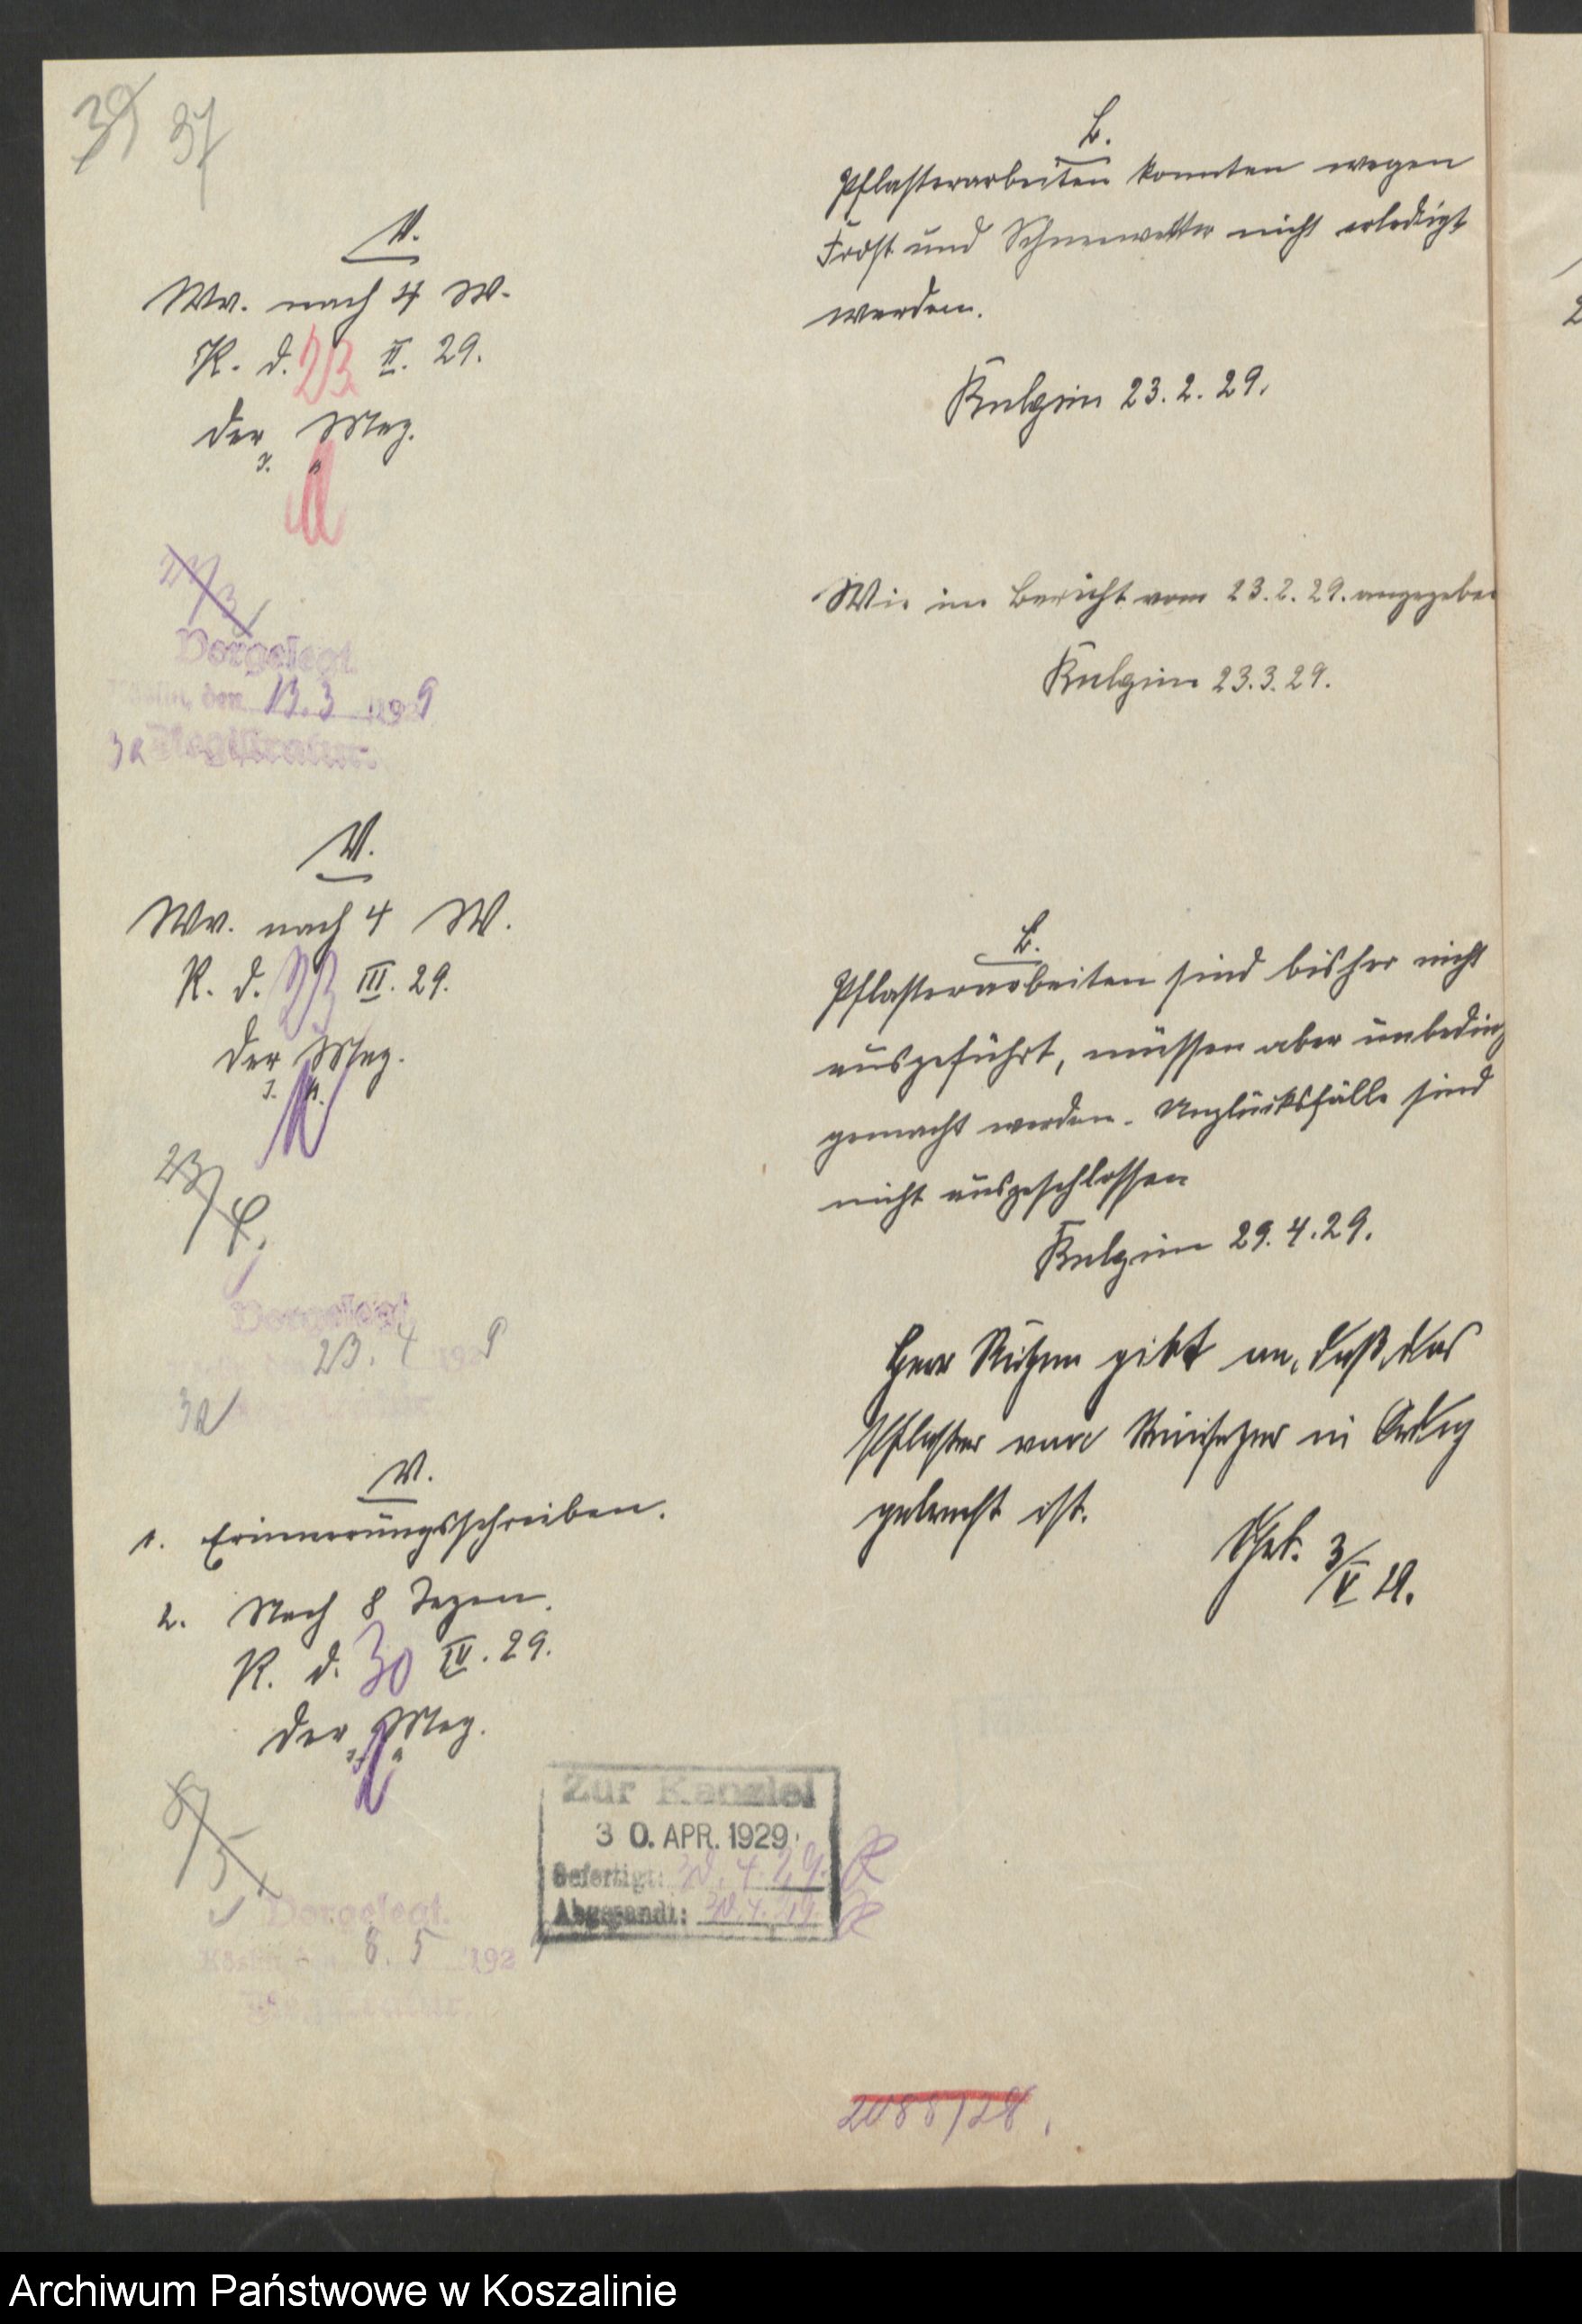 39 37
V.
Wv. nach 4 W.
K. d. 23 II. 29.
Der Mag.
J. A.
Vorgelegt
Köslin, den 13.3 1929
Registratur.
V.
Wv. nach 4 W.
K. d. 23 III. 29.
Der Mag.
J. A.
23/4.
Vorgelegt
23. 4 1929
V.
1. Erinnerungsschreiben.
2. Nach 8 Tagen.
K. d. 30 IV. 29.
Der Mag.
J. A.
8/5
Vorgelegt.
Köslin 8. 5 192
Zur Kanzlei
30. APR. 1929
Gefertigt: 30. 4. 29.
Abgesandt: 30. 4. 29.
B.
Pflasterarbeiten konnten wegen
Frost und Schneewetter nicht erledigt
werden.
23. 2. 29.
Wie im Bericht vom 23. 2. 29. angegeben
23. 3. 29.
B.
Pflasterarbeiten sind bisher nicht
ausgeführt, müssen aber unbeding
gemacht werden. Unglücksfälle sind
nicht ausgeschlossen
29. 4. 29.
Herr gibt an, daß das
Pflaster vom Steinsetzer in Ordng
gebracht ist.
3/V 29.
2088/28.
Archiwum Państwowe w Koszalinie